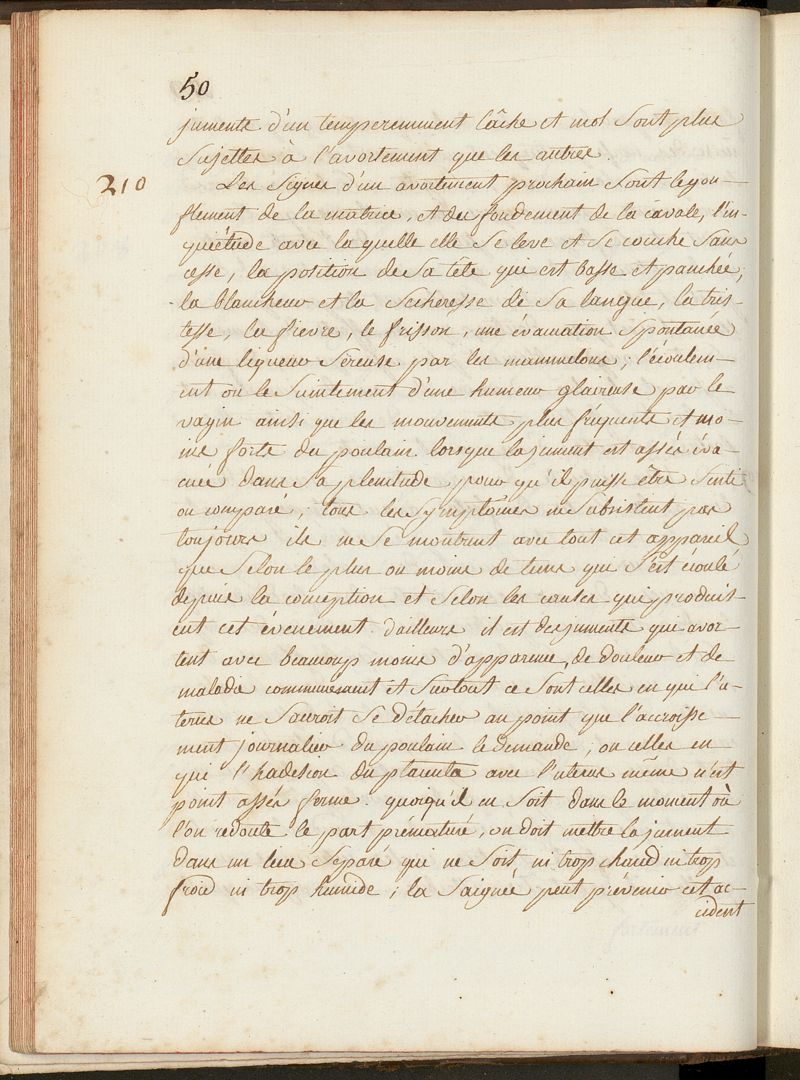 50
juments d'un temperemment lâche et mol Sont plus
Sujettes à l'avortement que les autres.
210
Les Signes d'un avortement prochain Sont le gon-
flement de la matrice, et du fondement de la cavale, l'in-
quiétude avec la quelle elle Se leve et Se couche Sans
cesse, la position de Sa tête qui est basse et panchée;
la blancheur et la Secheresse de Sa langue, la tris-
tesse, la fievre, le frisson, une évacuation Spontanée
d'une liqueur Séreuse par les mammelons; l'écoulem-
ent ou le Suintement d'une humeur glaireuse par le
vagin ainsi que les mouvements plus fréquents et mo-
ins forts du poulain. lorsque la jument est assés éva-
cuée dans Sa plenitude pour qu'il puisse être Senti
ou comparé; tous les Symptômes ne Subsistent pas
toujours ils ne Se montrent avec tout cet appareil
que Selon le plus ou moins de tems qui S'est écoulé
depuis la conception et Selon les causes qui produis-
ent cet évènement. d'ailleurs il est des juments qui avor-
tent avec beaucoup moins d'apparence, de douleur et de
maladie communement et Surtout ce Sont celles en qui l'u-
terus ne Sauroit Se détacher au point que l'accroisse-
ment journalier du poulain le demande, ou celles en
qui l'hadesion du placenta avec l'uterus même n'est
point assés ferme. quoiqu'il en Soit dans le moment où
l'on redoute le part prématuré, on doit mettre la jument
dans un lieu Séparé qui ne Soit ni trop chaud ni trop
froid ni trop humide; la Saignée peut prévenir cet ac-
cident